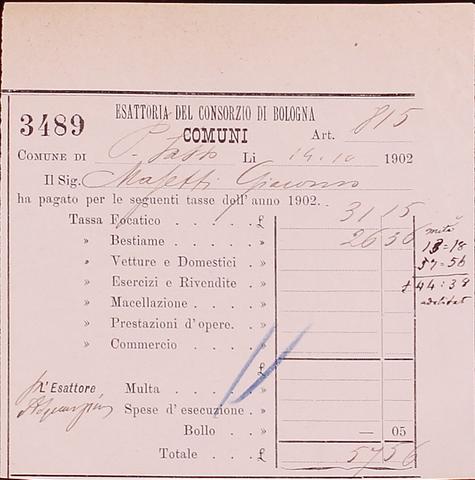 ESATTORIA DEL CONSORZIO DI BOLOGNA
3489 COMUNI Art. 815
COMUNE DI P. Sasso Li 14.10 1902
Il Sig. Masetti Giacomo
ha pagato per le seguenti tasse dell'anno 1902. .
Tassa Focatico . . . . . £ 31 15
» Bestiame . . . . . » 26 36
» Vetture e Domestici . »
» Esercizi e Rivendite . »
» Macellazione . . . . »
» Prestazioni d'opere. . »
» Commercio . . . . »
£
metà
13=18
57=56
£ 44:38
L'Esattore Multa . . . . . »
Spese d'esecuzione . »
Bollo . . . » — 05
Totale . . . £ 57 56